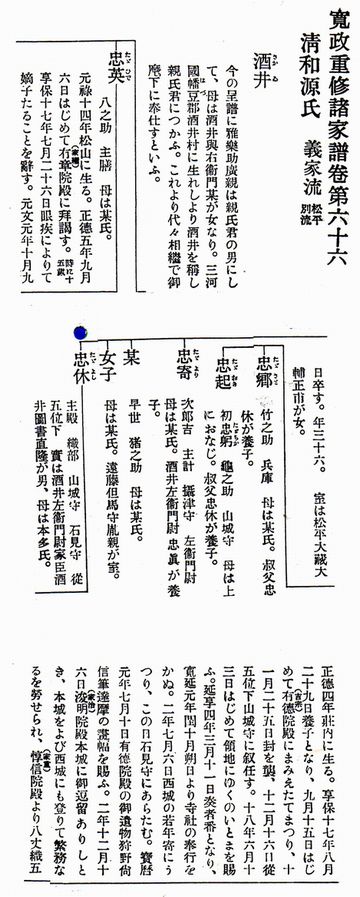 寛政重修諸家譜巻第六十六
清和源氏 義家流 松平別流
酒井
さかゐ
今の呈譜に雅樂助廣親は親氏君の男にし
て、母は酒井與右衞門某が女なり。三河
國幡豆郡酒井村に生れしより酒井を稱し
親氏君につかふ。これより代々相繼で御
麾下に奉仕すといふ。
忠英
たゞひで
八之助 主膳 母は某氏。
元祿十四年松山に生る。正德五年九月
六日はじめて有章院殿(家繼)に拜謁す。時に十五歲
享保十七年七月二十六日眼疾によりて
嫡子たることを辭す。元文元年十月九
日卒す。年三十六。 室は松平大藏大
輔正甫が女。
忠鄕
たゞさと
竹之助 兵庫 母は某氏。叔父忠
休が養子。
忠起
たゞおき
初忠躬 龜之助 山城守 母は上
におなじ。叔父忠休が養子。
忠寄
たゞより
次郎吉 主計 攝津守 左衞門尉
母は某氏。酒井左衞門尉忠眞が養
子。
某
早世 猪之助 母は某氏。
女子
母は某氏。遠藤但馬守胤親が室。
忠休
たゞよし
主殿 織部 山城守 石見守 從
五位下 實は酒井左衞門尉家臣酒
井圖書直隆が男、母は本多氏。
正德四年莊內に生る。享保十七年八月
二十九日養子となり、九月十五日はじ
めて有德院殿(吉宗)にまみえたてまつり、十
一月二十五日封を襲、十二月十六日從
五位下山城守に叙任す。十八年六月十
三日はじめて領地にゆくのいとまを賜
ふ。延享四年三月十一日奏者番となり、
寬延元年閏十月朔日より寺社の奉行を
かぬ。二年七月六日西城の若年寄にう
つり、この日石見守にあらたむ。寶曆
元年七月十日有德院殿の御遺物狩野尙
信筆達摩の畫幅を賜ふ。二年十二月十
六日浚明院殿(家治)本城に御逗留ありしと
き、本城をよび西城にも登りて繁務な
るを勞せられ、惇信院殿(家重)より八丈織五